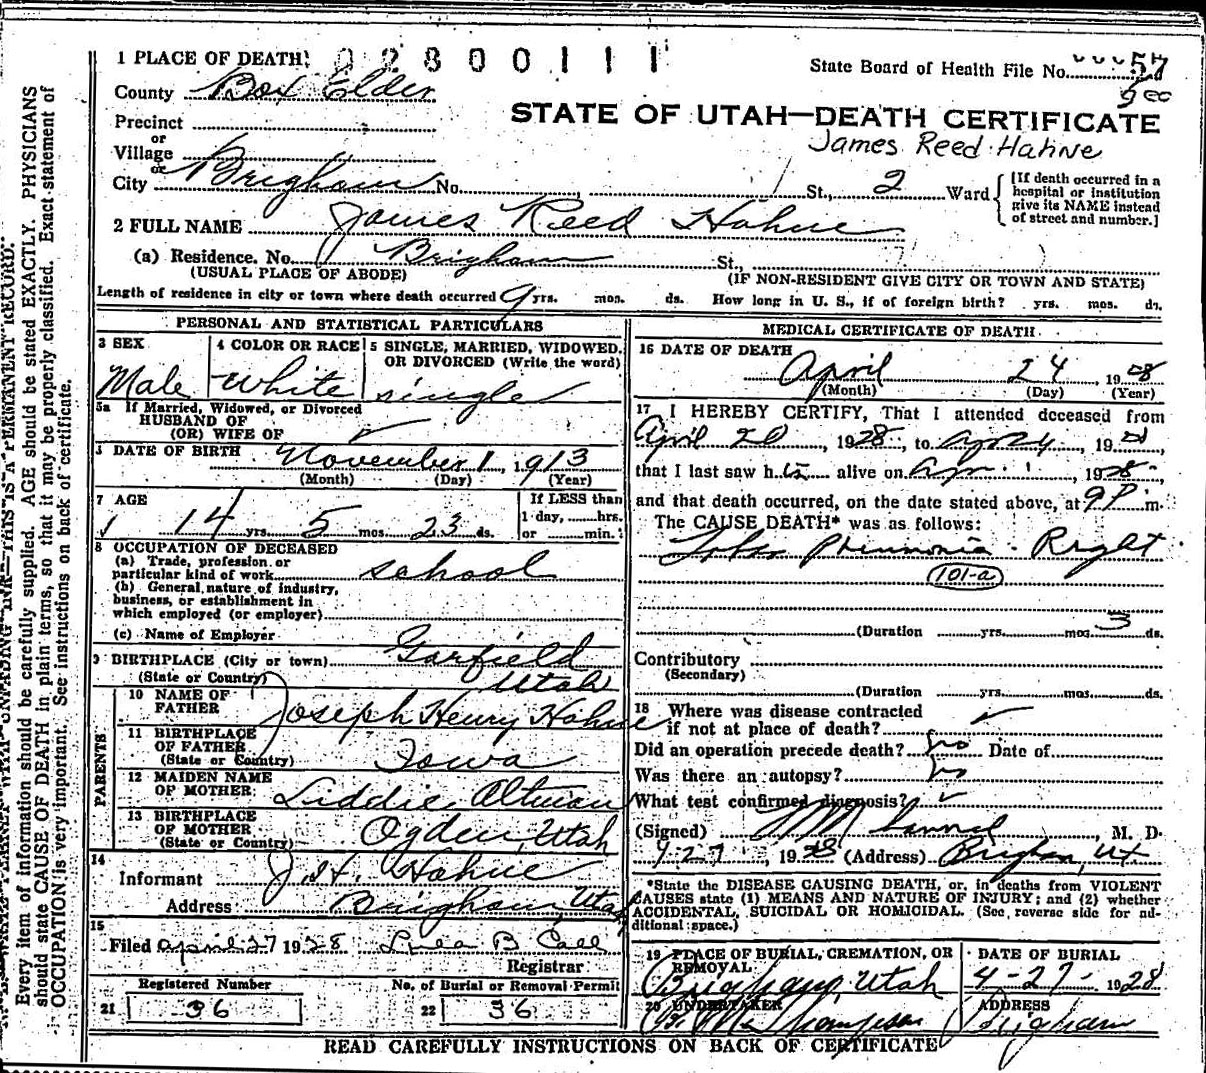 1 PLACE OF DEATH: 02800111
State Board of Health File No. 57
County Box Elder
STATE OF UTAH—DEATH CERTIFICATE
Precinct
James Reed Hahne
or
Village
or
City Brigham No. St., 2 Ward
[If death occurred in a hospital or institution give its NAME instead of street and number.]
2 FULL NAME James Reed Hahne
(a) Residence. No. Brigham St.,
(USUAL PLACE OF ABODE) (IF NON-RESIDENT GIVE CITY OR TOWN AND STATE)
Length of residence in city or town where death occurred 9 yrs. mos. ds. How long in U. S., if of foreign birth? yrs. mos. ds.
PERSONAL AND STATISTICAL PARTICULARS
3 SEX
Male
4 COLOR OR RACE
white
5 SINGLE, MARRIED, WIDOWED, OR DIVORCED (Write the word)
single
5a If Married, Widowed, or Divorced
HUSBAND OF
(OR) WIFE OF
DATE OF BIRTH November 1, 1913
(Month) (Day) (Year)
7 AGE
14 yrs. 5 mos. 23 ds.
If LESS than
1 day, hrs.
or min.
8 OCCUPATION OF DECEASED
(a) Trade, profession or
particular kind of work school
(b) General nature of industry,
business, or establishment in
which employed (or employer)
(c) Name of Employer
9 BIRTHPLACE (City or town) Garfield
(State or Country) Utah
PARENTS
10 NAME OF
FATHER Joseph Henry Hahne
11 BIRTHPLACE
OF FATHER
(State or Country) Iowa
12 MAIDEN NAME
OF MOTHER Liddie Altman
13 BIRTHPLACE
OF MOTHER
(State or Country) Ogden, Utah
14
Informant J. H. Hahne
Address Brigham, Utah
15
Filed April 27 1928 B Call
Registrar
Registered Number
21 36
No. of Burial or Removal Permit
22 36
MEDICAL CERTIFICATE OF DEATH
16 DATE OF DEATH
April 24 1928
(Month) (Day) (Year)
17 I HEREBY CERTIFY, That I attended deceased from
April 20, 1928, to Ap 24, 1928,
that I last saw him alive on 1928,
and that death occurred, on the date stated above, at 9 P m.
The CAUSE DEATH* was as follows:
Lobar Pneumonia - Right
101-a
(Duration yrs. mos. 3 ds.
Contributory
(Secondary)
(Duration yrs. mos. ds.
18 Where was disease contracted
if not at place of death?
Did an operation precede death? no Date of
Was there an autopsy? no
What test confirmed diagnosis?
(Signed) M. D.
4 27, 1928 (Address) Brigham, Ut
*State the DISEASE CAUSING DEATH, or, in deaths from VIOLENT
CAUSES state (1) MEANS AND NATURE OF INJURY; and (2) whether
ACCIDENTAL, SUICIDAL OR HOMICIDAL. (See reverse side for ad-
ditional space.)
19 PLACE OF BURIAL, CREMATION, OR
REMOVAL
Brigham, Utah
DATE OF BURIAL
4-27- 1928
20 UNDERTAKER
Thompson
ADDRESS
Brigham
READ CAREFULLY INSTRUCTIONS ON BACK OF CERTIFICATE
THIS IS A PERMANENT RECORD.
Every item of information should be carefully supplied. AGE should be stated EXACTLY. PHYSICIANS
should state CAUSE OF DEATH in plain terms, so that it may be properly classified. Exact statement of
OCCUPATION is very important. See instructions on back of certificate.